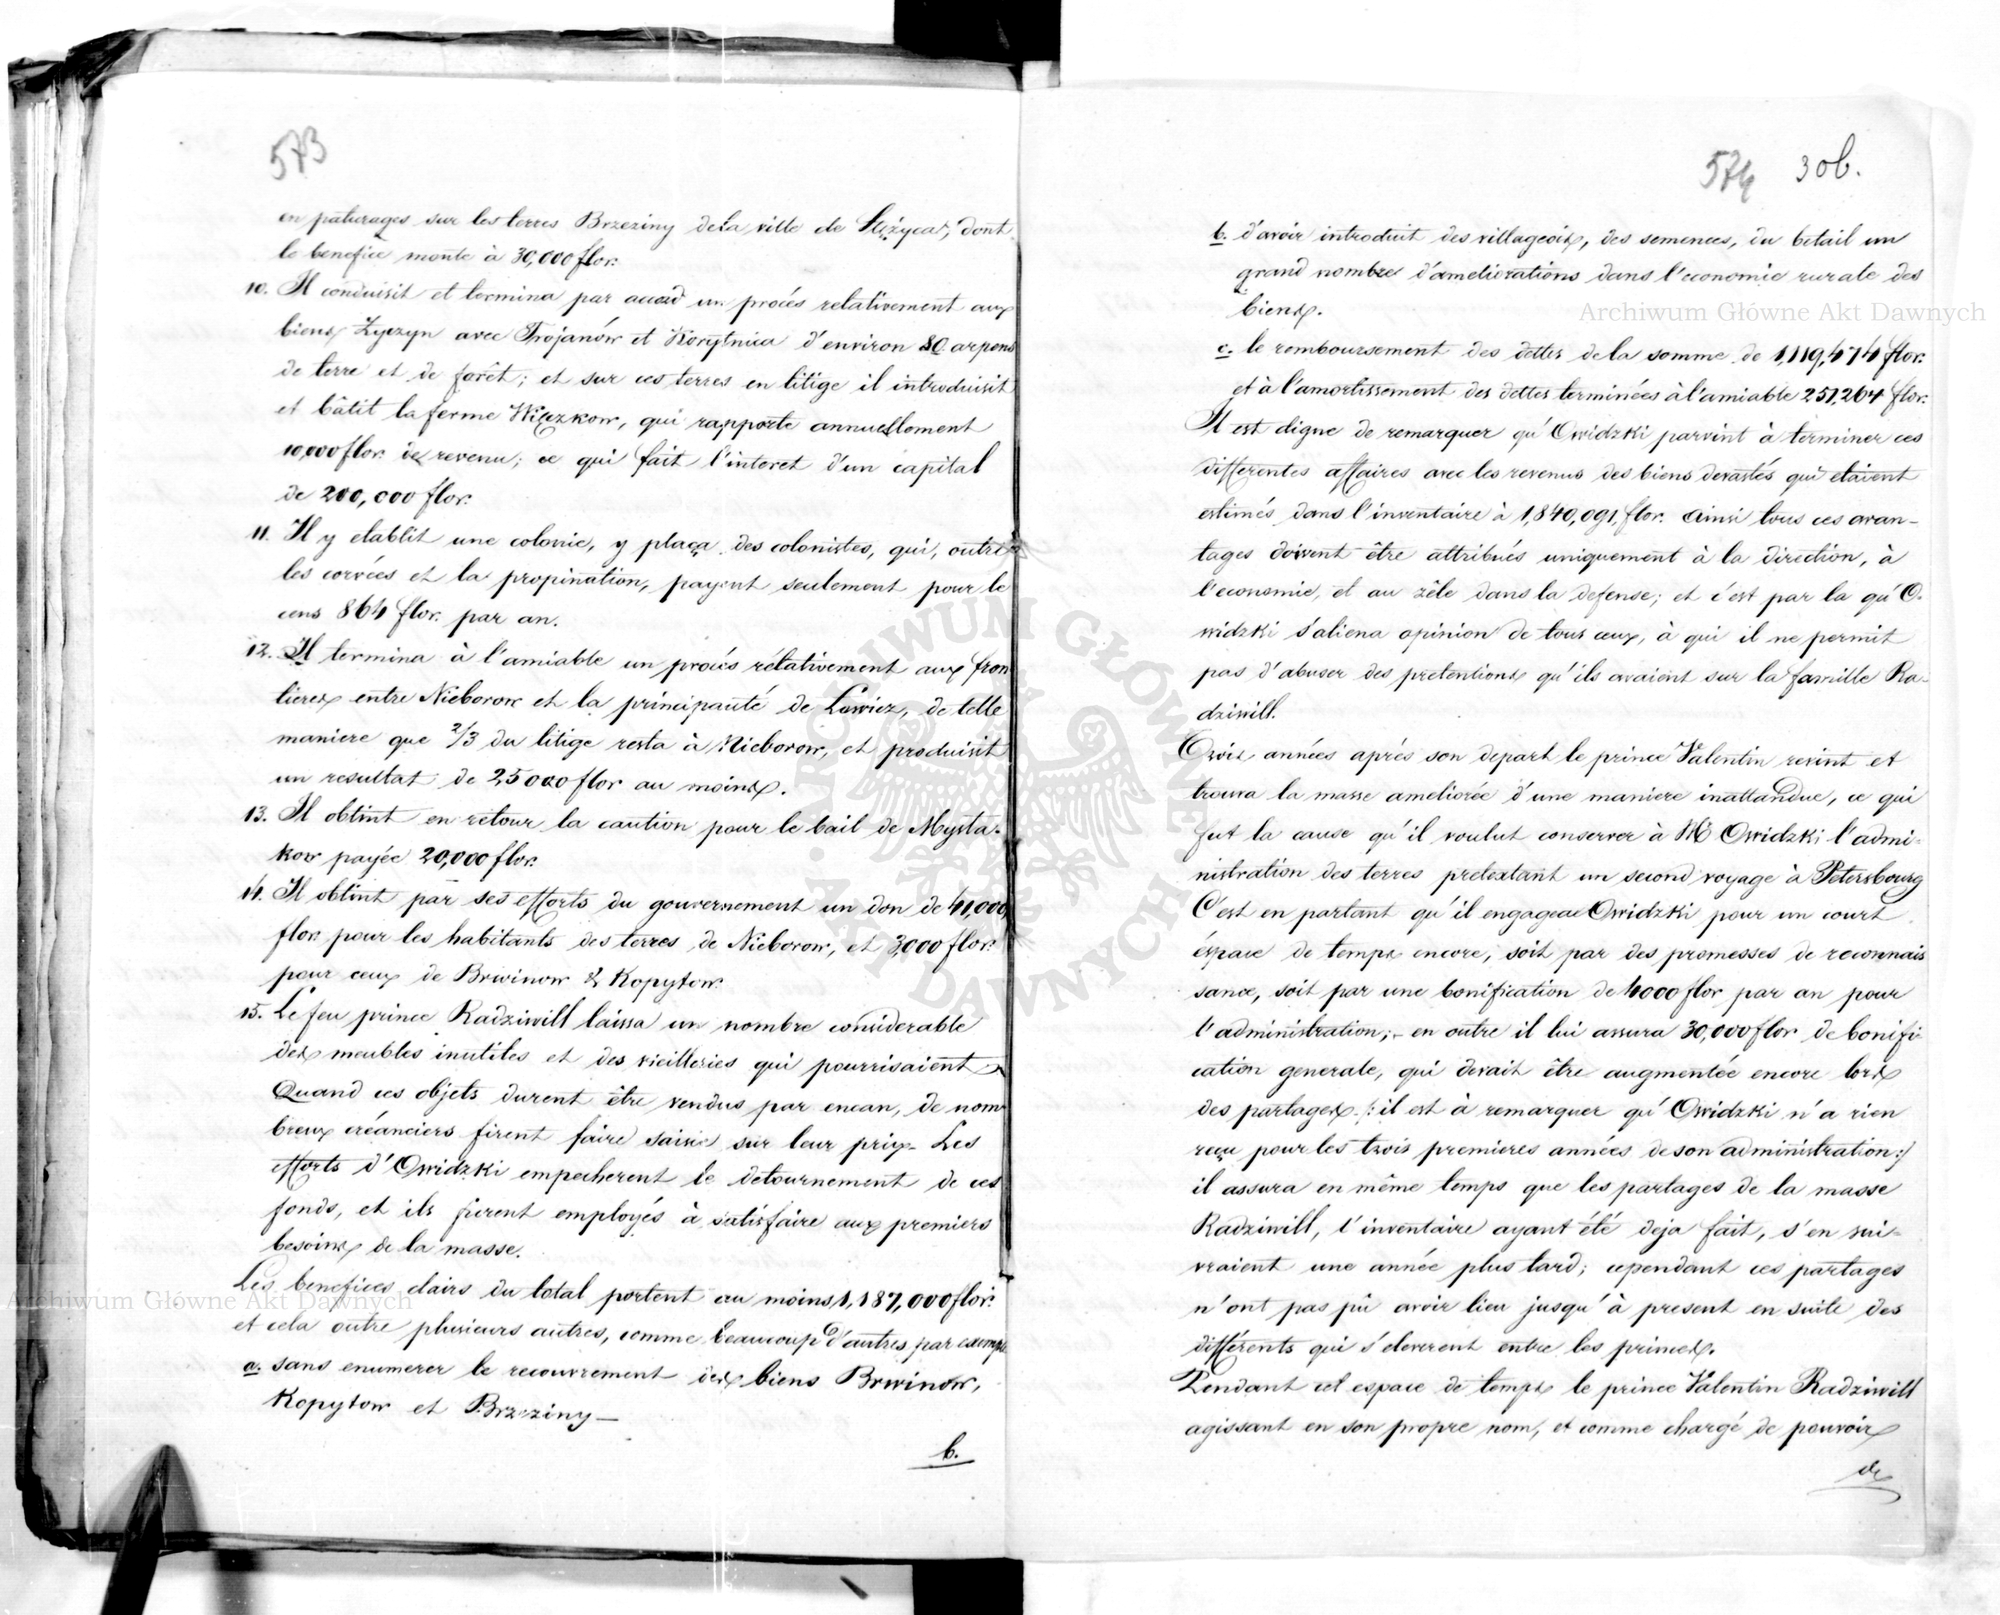 573
en paturages sur les terres Brzeziny dela ville de Stężyca, dont
le benefice monte à 30,000 flor.
10. Il conduisit et termina par accord un procés relativement aux
biens Zyczyn avec Trojanów et Korytnica d'environ 80 arpens
de terre et de forêt; et sur ces terres en litige il introduisit
et bâtit la ferme Więczkow, qui rapporte annuellement
10,000 flor. de revenu; ce qui fait l'interet d'un capital
de 200,000 flor.
11. Il y etablit une colonie, y plaça des colonistes, qui, outre
les corvées et la propination, payent seulement pour le
cens 864 flor. par an.
12. Il termina à l'amiable un procés rélativement aux fron
tieres entre Nieborow et la principauté de Lowicz, de telle
maniere que 2/3 du litige resta à Nieborow, et produisit
un resultat de 25000 flor au moins.
13. Il obtint en retour la caution pour le bail de Mysta-
kow payée 20,000 flor.
14. Il obtint par ses efforts du gouvernement un don de 41,000
flor. pour les habitants des terres de Nieborow, et 3000 flor.
pour ceux de Brwinow & Kopytow.
15. Le feu prince Radziwill laissa un nombre considerable
des meubles inutiles et des vieilleries qui pourrisaient
Quand ces objets durent être vendus par encan, de nom
breux créanciers firent faire saisie sur leur prix. Les
efforts d'Owidzki empecherent le detournement de ces
fonds, et ils furent employés à satisfaire aux premiers
besoins de la masse.
Les benefices clairs du total portent au moins 1,187,000 flor.
et cela outre plusieurs autres, comme beaucoup d'autres par exemple
a. sans enumerer le recouvrement des biens Brwinow,
Kopytow et Brzeziny —
b.
574 306.
b. d'avoir introduit des villageois, des semences, du betail un
grand nombre d'ameliorations dans l'economie rurale des
biens.
c. le remboursement des dettes dela somme de 1,119,474 flor.
et à l'amortissement des dettes terminées à l'amiable 251,264 flor.
Il est digne de remarquer qu'Owidzki parvint à terminer ces
différentes affaires avec les revenus des biens devastés qui etaient
estimés dans l'inventaire à 1,840,091, flor. Ainsi tous ces avan-
tages doivent être attribués uniquement à la direction, à
l'economie, et au zêle dans la defense; et c'est par la qu'O-
widzki s'aliena opinion de tous ceux, à qui il ne permit
pas d'abuser des pretentions qu'ils avaient sur la famille Ra-
dziwill.
Trois années aprés son depart le prince Valentin revint et
trouva la masse ameliorée d'une maniere inattandue, ce qui
fut la cause qu'il voulut conserver à Mr Owidzki l'admi-
nistration des terres pretextant un second voyage à Petersbourg
C'est en partant qu'il engageae Owidzki pour un court
éspace de temps encore, soit par des promesses de reconnais
sance, soit par une bonification de 4000 flor par an pour
l'administration;- en outre il lui assura 30,000 flor de bonifi-
cation generale, qui devait être augmentée encore lors
des partages. /: il est à remarquer qu'Owidzki n'a rien
reçu pour les trois premieres années de son administration :/
il assura en même temps que les partages de la masse
Radziwill, l'inventaire ayant été deja fait, s'en sui-
vraient une année plus tard; cependant ces partages
n'ont pas pû avoir lieu jusqu'à present en suite des
différents qui s'eleverent entre les princes.
Pendant cet espace de temps le prince Valentin Radziwill
agissant en son propre nom, et comme chargé de pouvoir
de
Archiwum Główne Akt Dawnych
Archiwum Główne Akt Dawnych
ARCHIWUM GŁÓWNE AKT DAWNYCH